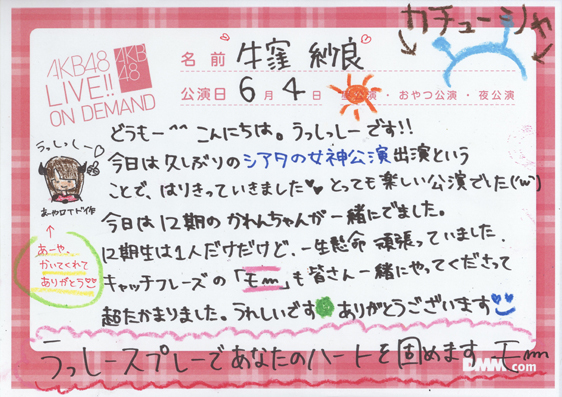 カチューシャ
AKB48
LIVE!!
ON DEMAND
AKB
48
名前 牛窪 紗良
公演日 6月4日 ・おやつ公演・夜公演
どうもー^^ こんにちは。うっしっしーです!!
今日は久しぶりのシアターの女神公演出演という
ことで、はりきっていきました♥♥とっても楽しい公演でした('ω')
今日は12期のかわんちゃんが一緒にでました。
12期生は1人だけだけど、一生懸命頑張っていました。
キャッチフレーズの「モm」も皆さん一緒にやってくださって
超たかまりました。うれしいです ありがとうございます
うっしースプレーであなたのハートを固めます モm
うっしっしー♡
あーや
↑
あーや、
かいてくれて
ありがとう♡♡
DMM.com